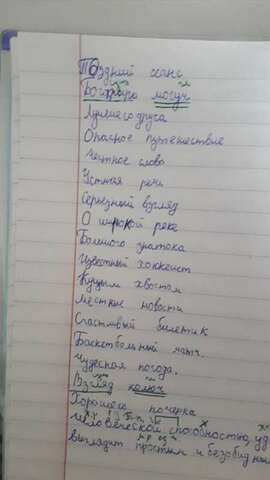 Поздний сеанс
Богатырь могуч
Лучшего друга
Опасное путешествие
Честное слово
Устная речь
Серьезный взгляд
О широкой реке
Большого знатока
Известный хоккеист
Куцым хвостом
Местные новости
Счастливый билетик
Баскетбольный матч.
Чудесная погода.
Взгляд колюч
Хорошего почерка
человеческой способностью
выглядит простым и безобид